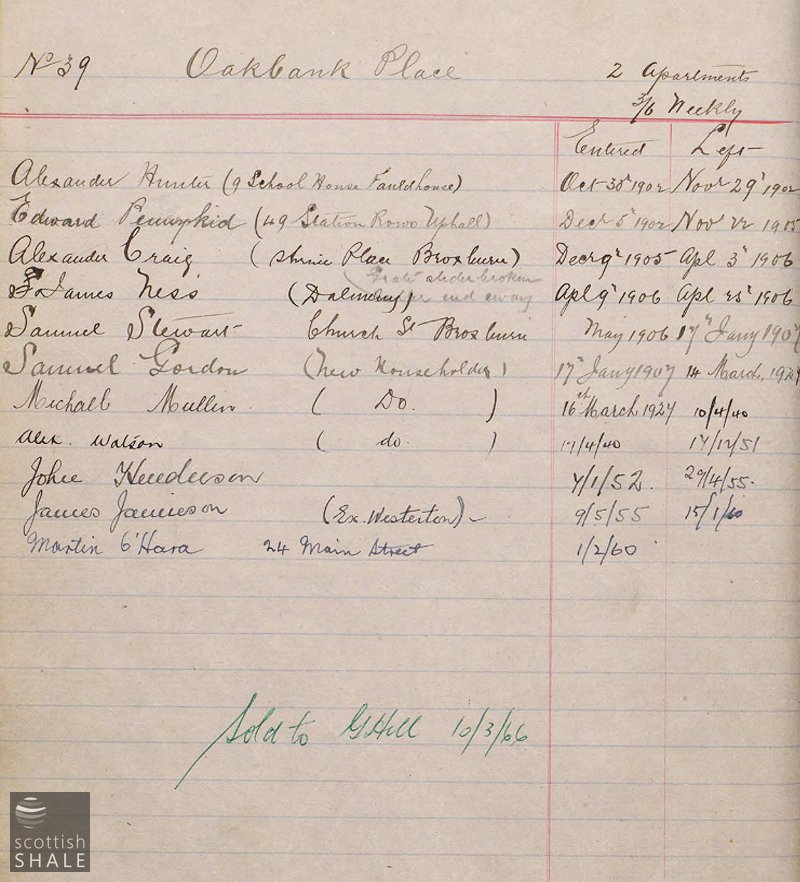 No 39 Oakbank Place 2 Apartments
3/6 Weekly
Entered Left
Alexander Hunter (9 School House Fauldhouse) Oct 30th 1902 Novr 29th 1902
Edward (49 Station Rows Uphall) Decr 5th 1902 Novr 22 1905
Alexander Craig (Shrine Place Broxburn) Decr 9th 1905 Apl 3rd 1906
Grate slider broken
James Ness (Dalmeny) Apl 9th 1906 Apl 25th 1906
and away
Samuel Stewart Church St Broxburn May 1906 17th Jany 1907
Samuel Gordon (New Householder) 17th Jany 1907 14 March, 1927
Michall Mullin ( Do. ) 16th March 1927 10/4/40
Alex. Watson ( do. ) 17/4/40 17/12/51
John Henderson 7/1/52. 29/4/55.
James Jamieson (Ex. Westerton) 9/5/55 15/1/60
Martin O'Hara 24 Main Street 1/2/60
Sold to G Hill 10/3/66
scottish
SHALE